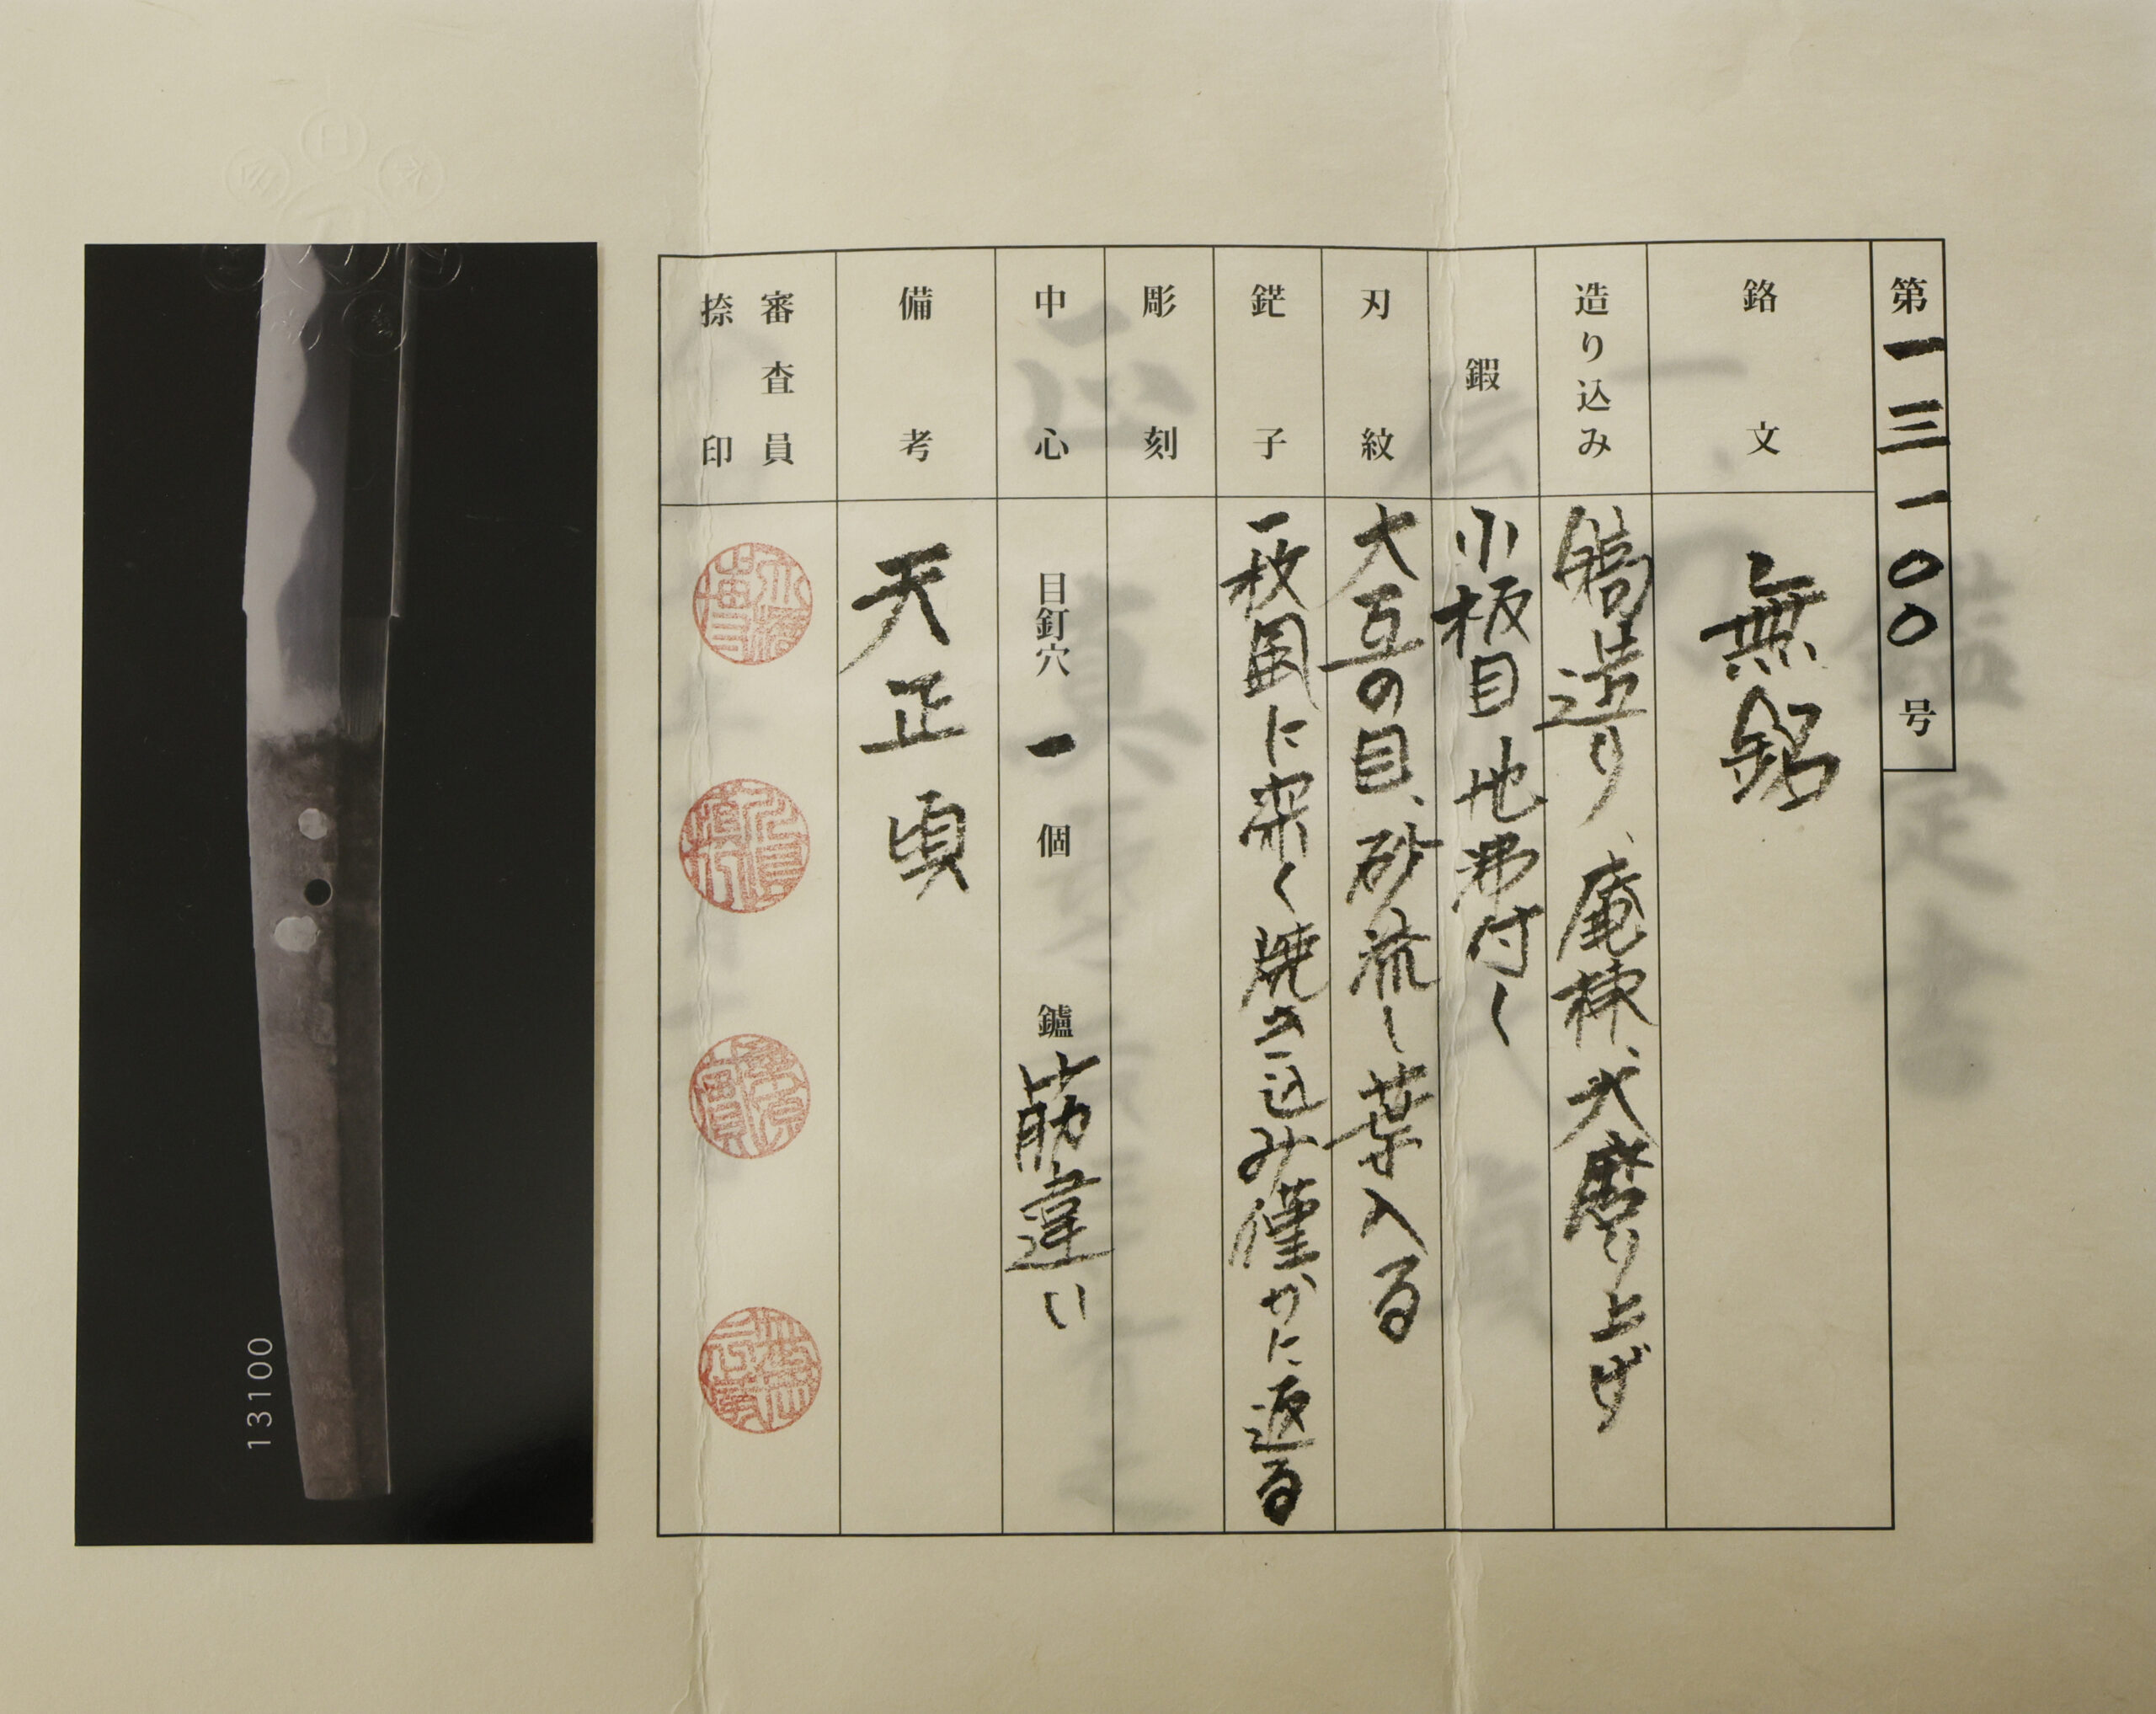 第一三一〇〇号
銘文 無銘
造り込み 鎬造り、庵棟、大磨り上げ
鍜 小板目地沸付く
刃紋 大互の目、砂流し葉入る
鋩子 一枚風に深く焼き込み僅かに返る
彫刻
中心 目釘穴 一 個 鑢 筋違い
備考 天正頃
審査員
捺印
13100